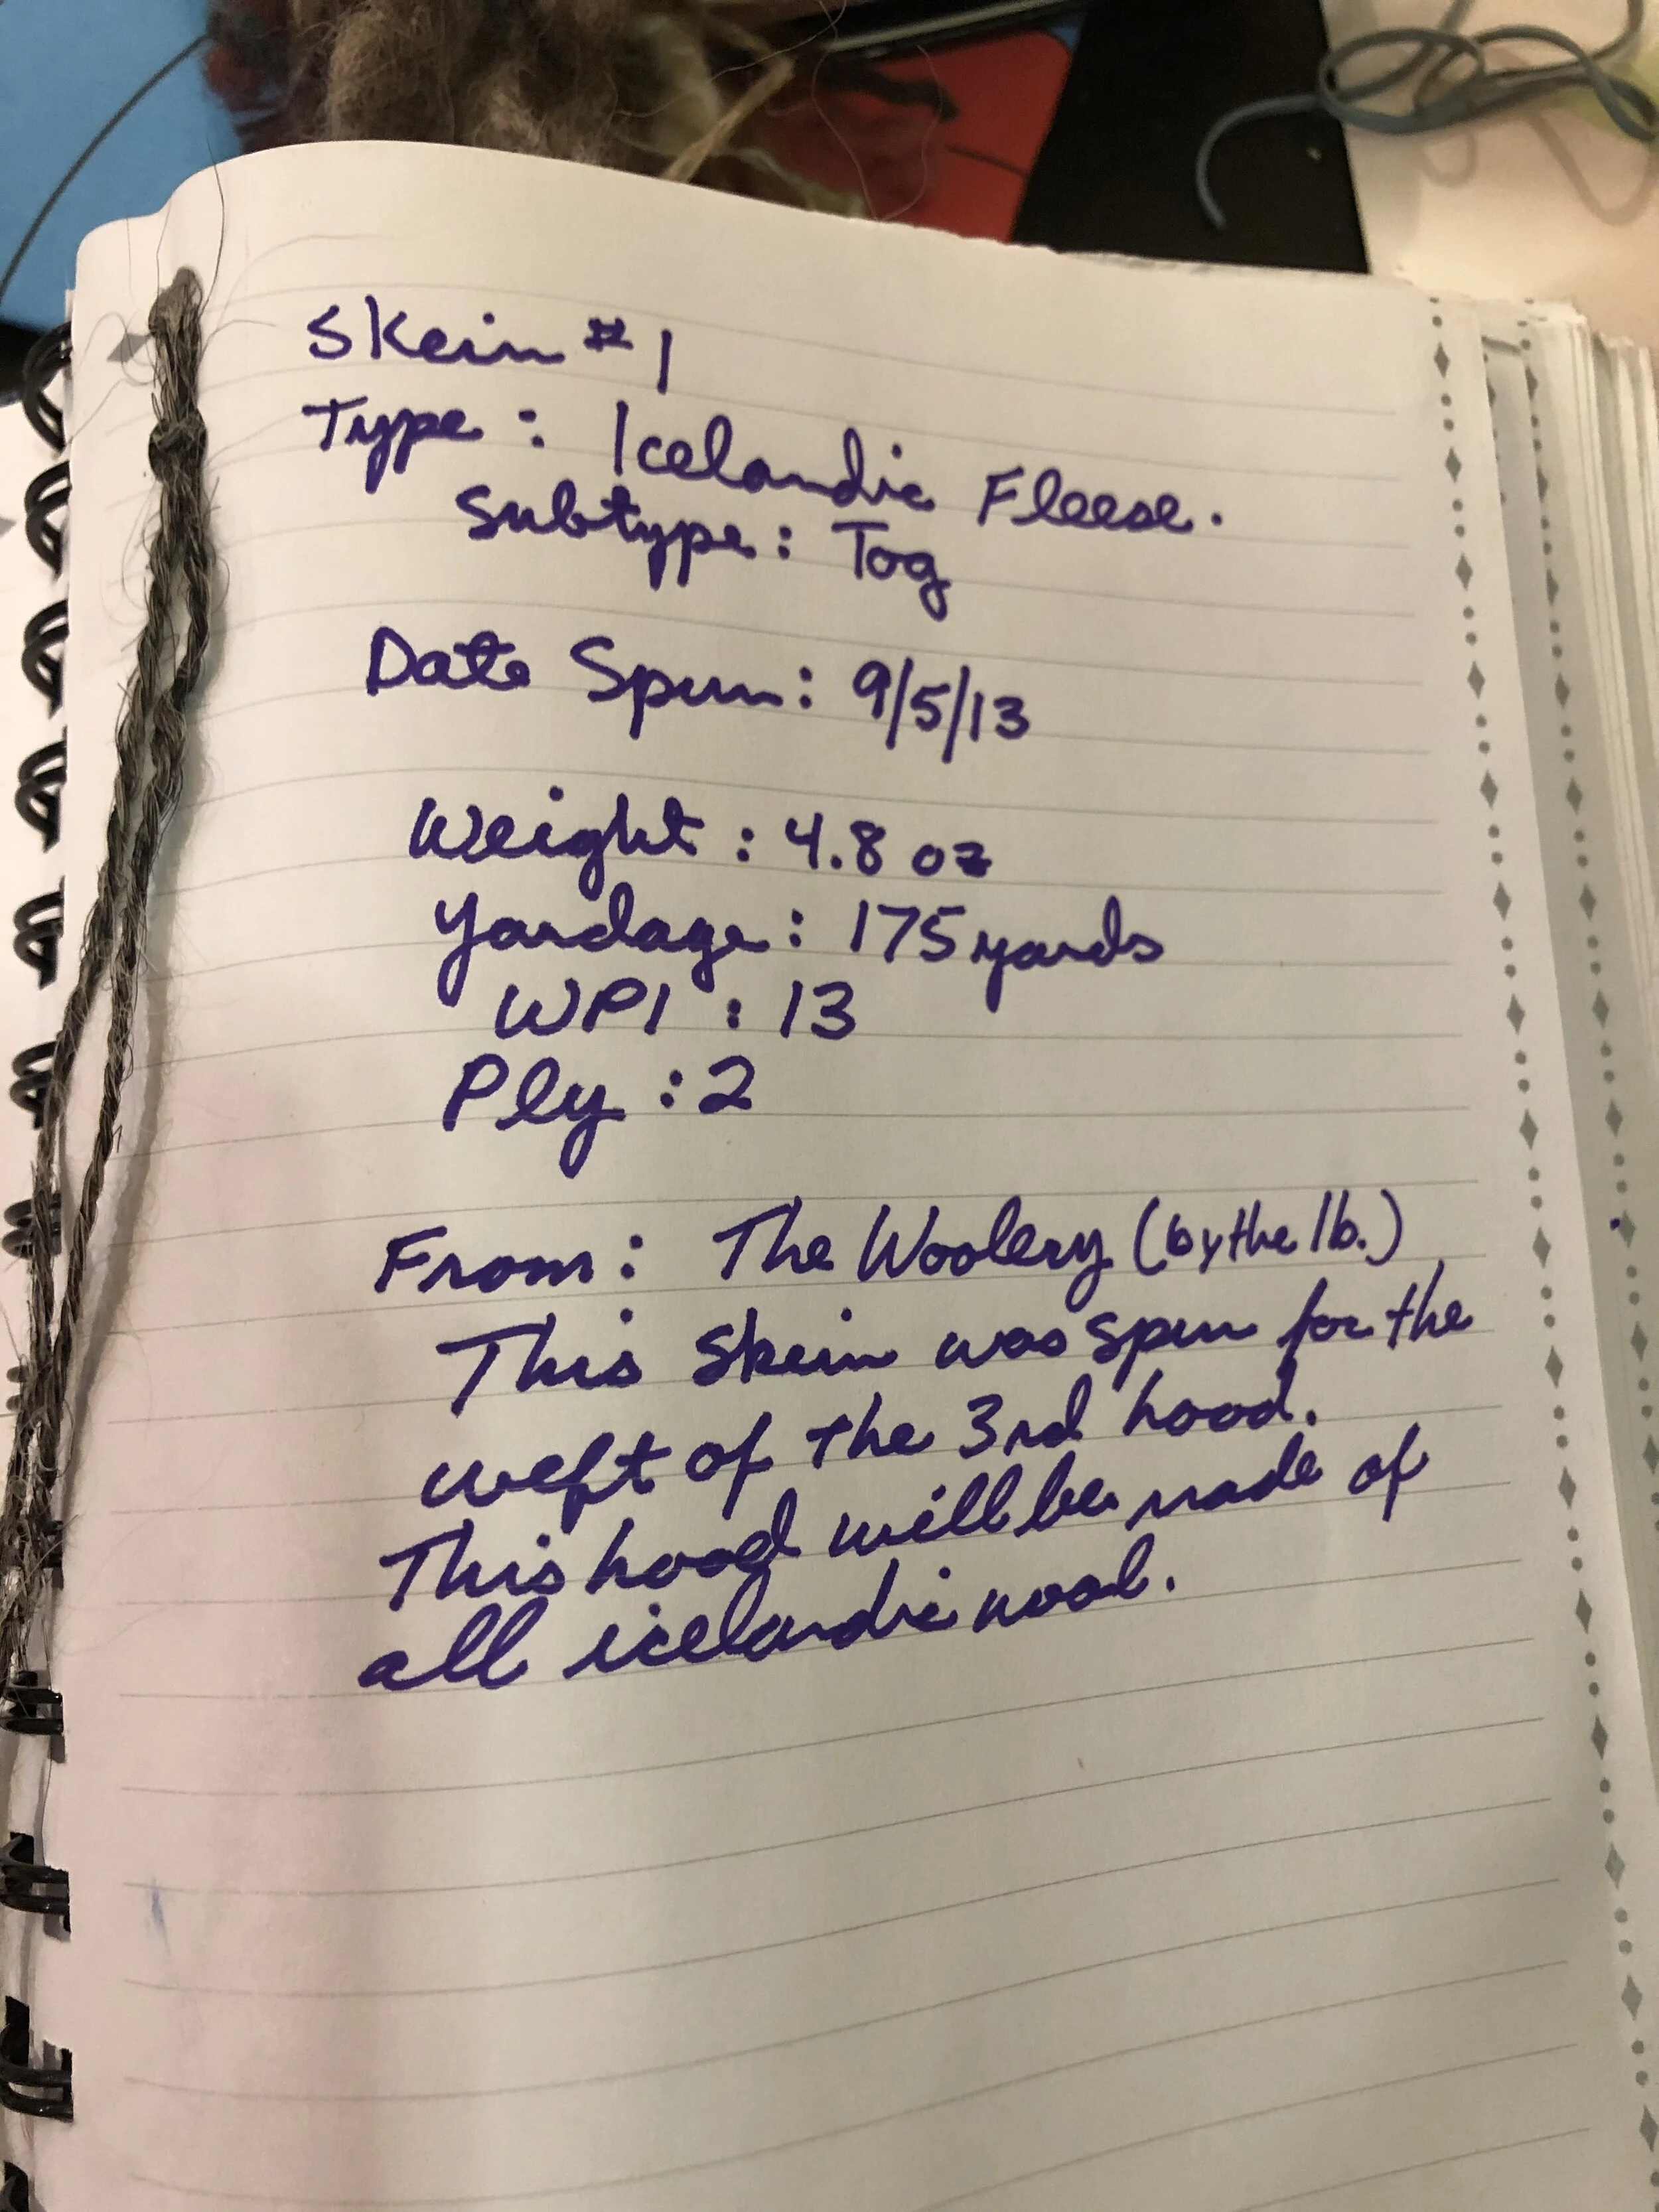 Skein #1
Type: Icelandic Fleese.
Subtype: Tog
Date Spun: 9/5/13
Weight: 4.8 oz
Yardage: 175 yards
WPI: 13
Ply: 2
From: The Woolery (by the lb.)
This skein was spun for the
weft of the 3rd hood.
This hood will be made of
all icelandic wool.